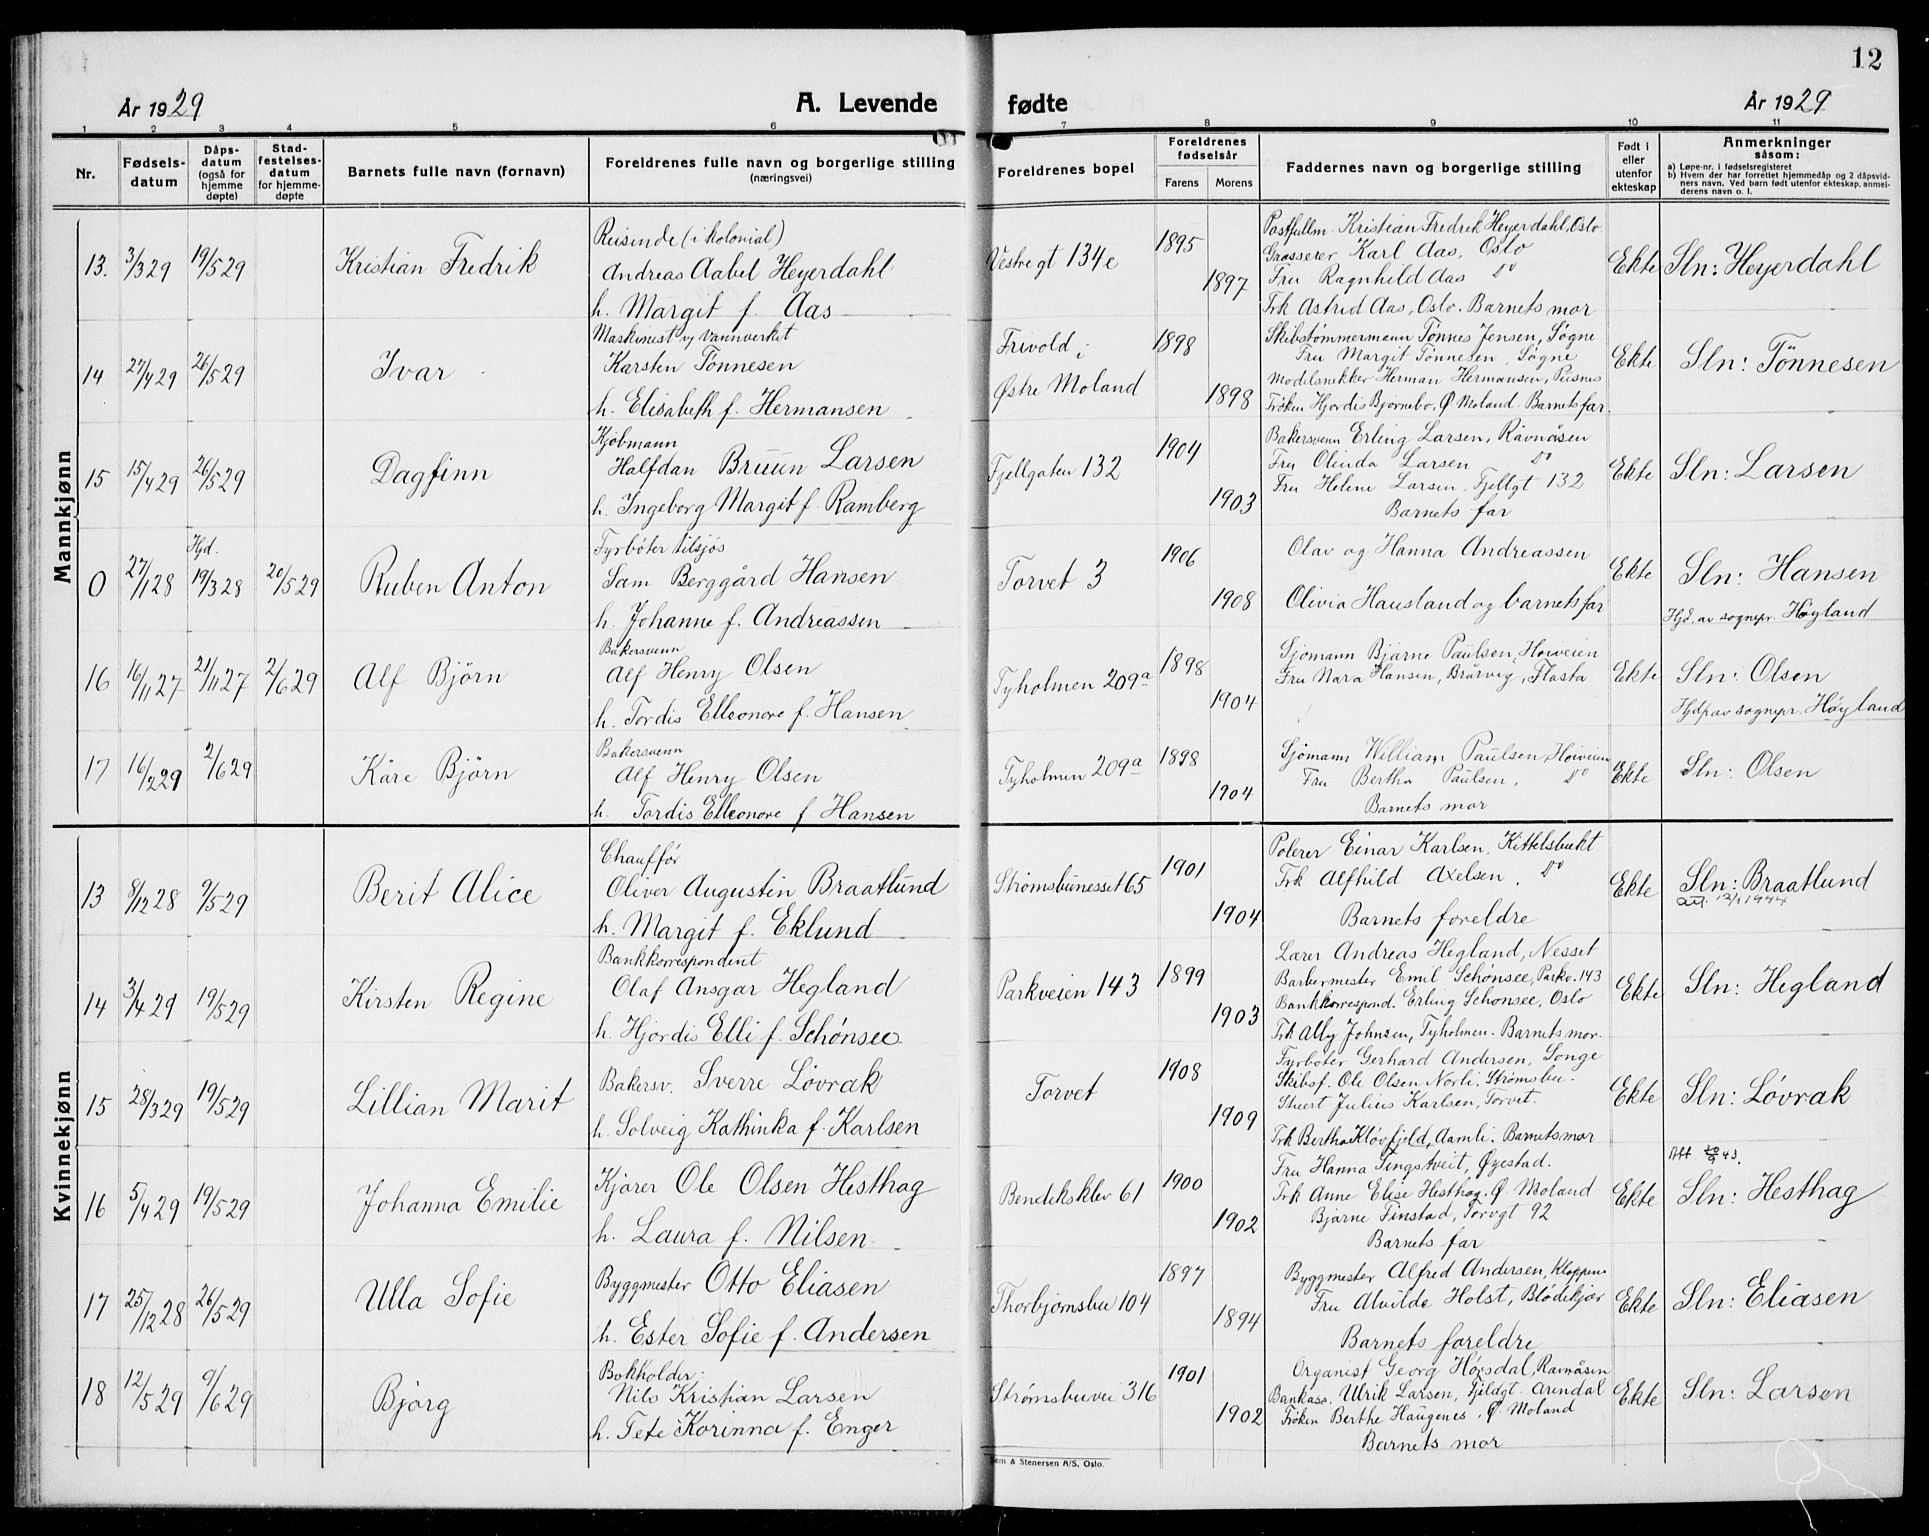 12
År 1929 A. Levende fødte År 1929
1 2 3 4 5 6 7 8 9 10 11
Nr. Fødsels-datum Dåps-datum (også for hjemme døpte) Stad-festelses-datum for hjemme-døpte Barnets fulle navn (fornavn) Foreldrenes fulle navn og borgerlige stilling (næringsvei) Foreldrenes bopel Foreldrenes fødselsår Farens Morens Faddernes navn og borgerlige stilling Født i eller utenfor ekteskap Anmerkninger såsom: a) Løpe-nr. i fødselsregisteret b) Hvem der har forrettet hjemmedåp og 2 dåpsvidners navn. Ved barn født utenfor ekteskap, anmelderens navn o. l.
Mannkjønn
13. 3/3 29 19/5 29 Kristian Fredrik
Reisende (i kolonial)
Andreas Aabel Heyerdahl
h. Margit f. Aas
Vestregt 134e 1895 1897
Postfullm. Kristian Fredrik Heyerdahl, Oslo
Grosserer Karl Aas, Oslo
Fru Ragnhild Aas Do
Frk Astrid Aas, Oslo. Barnets mor
Ekte Sln: Heyerdahl
14 27/4 29 26/5 29 Ivar
Maskinist v/ Vannverket
Karsten Tönnesen
h. Elisabeth f. Hermansen
Frivold i
Østre Moland 1898 1898
Skibstømmermann Tønnes Jensen, Søgne
Fru Margit Tønnesen, Søgne
Modelsnekker Herman Hermansen, Pusnes
Frøken Hjordis Bjørnebo, Ø Moland. Barnets far.
Ekte Sln: Tönnesen
15 15/4 29 26/5 29 Dagfinn
Kjøbmann
Halfdan Bruun Larsen
h. Ingeborg Margit f. Ramberg
Fjellgaten 132 1904 1903
Bakersvenn Erling Larsen, Ravnåsen
Fru Olinda Larsen Do
Fru Helene Larsen, Fjellgt 132
Barnets far
Ekte Sln: Larsen
0 27/1 28 Hjd. 19/3 28 20/5 29 Ruben Anton
Fyrbøter tilsjøs
Sam Berggård Hansen
h. Johanne f. Andreassen
Torvet 3 1906 1908
Olav og Hanna Andreassen
Olivia Hausland og barnets far
Ekte Sln: Hansen
Hjd. av sognepr. Høyland
16 16/11 27 21/11 27 2/6 29 Alf Björn
Bakersvenn
Alf Henry Olsen
h. Tordis Elleonore f. Hansen
Tyholmen 209a 1898 1904
Sjømann Bjarne Paulsen, Høiveien
Fru Nara Hansen, Brårvig, Flosta
Ekte Sln: Olsen
Hjdp av sognepr. Høyland
17 16/2 29 2/6 29 Kåre Björn
Bakersvenn
Alf Henry Olsen
h. Tordis Elleonore f. Hansen
Tyholmen 209a 1898 1904
Sjømann William Paulsen, Høiveien
Fru Bertha Paulsen, Do
Barnets mor
Ekte Sln: Olsen
Kvinnekjønn
13 8/12 28 9/5 29 Berit Alice
Chauffør
Oliver Augustin Braatlund
h. Margit f. Eklund
Strømsbunesset 65 1901 1904
Polerer Einar Karlsen, Kittelsbukt
Frk Alfhild Axelsen, Do
Barnets foreldre
Ekte Sln: Braatlund
att. 12/1 1944
14 3/4 29 19/5 29 Kirsten Regine
Bankkorrespondent
Olaf Ansgar Hegland
h. Hjördis Elli f. Schönsee
Parkveien 143 1899 1903
Lærer Andreas Hegland, Nesset
Barbermester Emil Schönsee, Parkv. 143
Bankkorrespond. Erling Schönsee, Oslo
Frk Ally Johnsen, Tyholmen. Barnets mor.
Ekte Sln: Hegland
15 28/3 29 19/5 29 Lillian Marit
Bakersv. Sverre Lövrak
h. Solveig Kathinka f. Karlsen
Torvet 1908 1909
Fyrbøter Gerhard Andersen, Songe
Skibsf. Ole Olsen Norli, Strømsbu.
Stuert Julius Karlsen, Torvet.
Frk Bertha Kløvfjeld, Aamli. Barnets mor
Ekte Sln: Lövrak
16 5/4 29 19/5 29 Johanna Emilie
Kjører Ole Olsen Hesthag
h. Laura f. Nilsen
Bendiksklev 61 1900 1902
Fru Hanna Tingstveit, Øyestad.
Frk Anne Elise Hesthag, Ø Moland
Bjarne Finstad, Torvgt 92
Barnets far
Ekte Sln: Hesthag
17 25/12 28 26/5 29 Ulla Sofie
Byggmester Otto Eliasen
h. Ester Sofie f. Andersen
Thorbjørnsbu 104 1897 1894
Byggmester Alfred Andersen, Kloppene
Fru Alvilde Holst, Blødekjær
Barnets foreldre
Ekte Sln: Eliasen
18 12/5 29 9/6 29 Bjørg
Bokholder
Nils Kristian Larsen
h. Tete Korinna f. Enger
Strømsbuvei 316 1901 1902
Organist Georg Høgsdal, Ravnåsen
Bankass. Ulrik Larsen, Fjeldgt. Arendal
Frøken Berthe Haugenes, Ø Moland
Barnets mor
Ekte Sln: Larsen
& Stenersen A/S, Oslo.